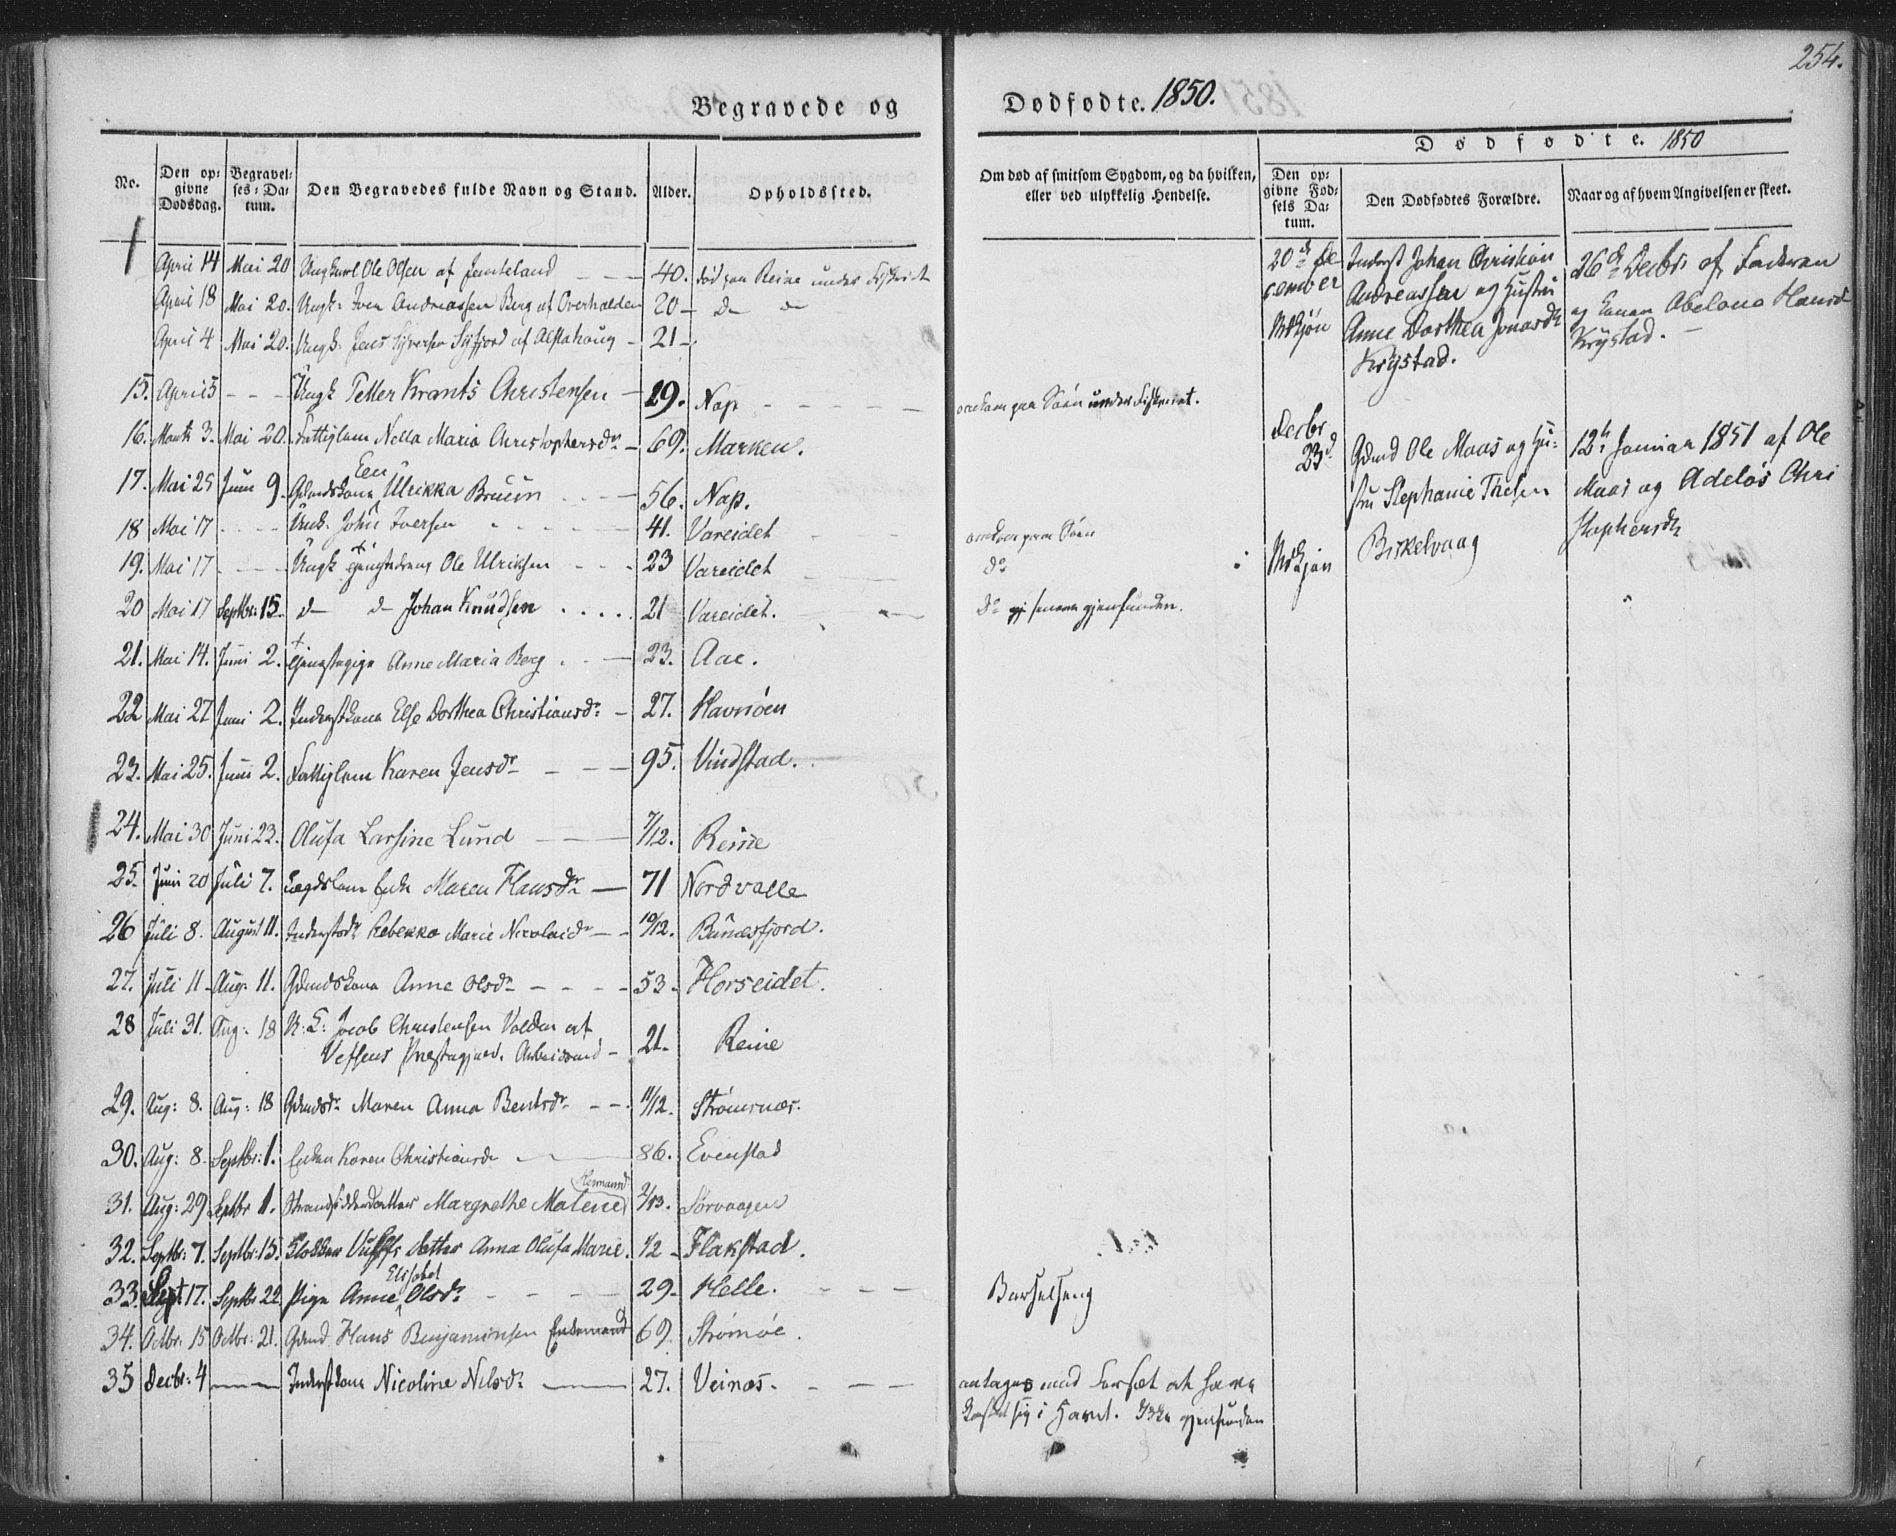 254.
Begravede og Dødfødte. 1850.
Dødfødte. 1850
No.
Den opgivne Dødsdag.
Begravelses-Datum.
Den Begravedes fulde Navn og Stand.
Alder.
Opholdssted.
Om død af smitsom Sygdom, og da hvilken, eller ved ulykkelig Hendelse.
Den opgivne Fødsels Datum.
Den Dødfødtes Forældre.
Naar og af hvem Angivelsen er skeet.
April 14 Mai 20 Ungkarl Ole Olsen af Jemteland — 40. død paa Reine under Fiskeriet
April 18 Mai 20. Ungk: Iver Andreassen Berg af Overhalden 20 — d— d—
April 4 Mai 20. Ungk. Jens Syversen af Alstahoug — 21 —
15. April 5 - - - Ungk Petter Krants Christensen — 19. Nap — omkom paa Søen under Fiskeriet.
16. Marts 3. Mai 20. Fattiglem Nella Maria Christophersdr — 69. Marken.
17. Mai 25 Juni 9. Gdmdskone Een Ulrikka Bruun — 56. Nap.
18 Mai 17 - - - Ungk. John Iversen — 41. Vareidet — omkom paa Søen
19. Mai 17 - - - Ungk Tjenestedreng Ole Ulriksen — 23 Vareidet — do
20 Mai 17 Septbr: 15. d— d— Johan Knudsen . . . . 21 Vareidet. — do senere gjenfunden.
21. Mai 14. Juni 2. Tjenestepige Anne Maria Berg . . — 23. Aae.
22 Mai 27 Juni 2. Inderstkone Else Dorthea Christiansdr — 27. Havnøen
23. Mai 25. Juni 2. Fattiglem Karen Jensdr — 95. Vindstad.
24. Mai 30 Juni 23. Olufa Larsine Lund — 7/12. Reine
25. Juni 20 Juli 7. Lægdslem Enke Maren Hansdr — 71 Nordvalle
26 Juli 8. August 11. Inderstdr Rebekka Marie Nicolaidr — 10/12. Bunæsfjord.
27. Juli 11 Aug: 11. Gdmdskone Anne Olsdr — 53 — Horseidet.
28 Juli 31. Aug: 18 Jacob Christensen af
Vefsens Præstegjæld. Arbeidsmd — 21. Reine
29. Aug: 8. Aug: 18 Gdmdsdr Maren Anna Bentsdr — 11/12. Strømsnæs.
30. Aug: 8. Septbr: 1. Enken Karen Christiansdr — 86. Evenstad
31. Aug: 29 Septbr 1. Strandsidderdatter Margrethe Malene Hermansd Sørvaagen
32. Septbr: 7. Septbr: 15. Klokker datter Anna Olufa Marie. 1/2 — Flakstad.
33. Sept 17. Septbr 22 Pige Anne Elisabet Olsdr — 29. Helle. — Barselseng
34. Octbr. 15 Octbr: 21. Gdmd Hans Benjaminsen Enkemand 69. Strømøe.
35 Decbr: 4 — Inderstkone Nicoline Nilsdr — 27. Veinæs. — antages med Forsæt at have
kastet sig i Havet. Ikke gjenfunden
20de De
cember
Mskjøn
Inderst Johan Christian
Andreassen og Hustru
Anne Dorthea Jonasdr
Krystad.
26de Decbr. af Faderen
og Konen Abelona Hansd
Krystad. —
Decbr
23d
Mskjøn
Gdmd Ole Maas og Hu-
stru Stephanie
Birkelvaag
12te Januar 1851 af Ole
Maas og Chri
stophersdr